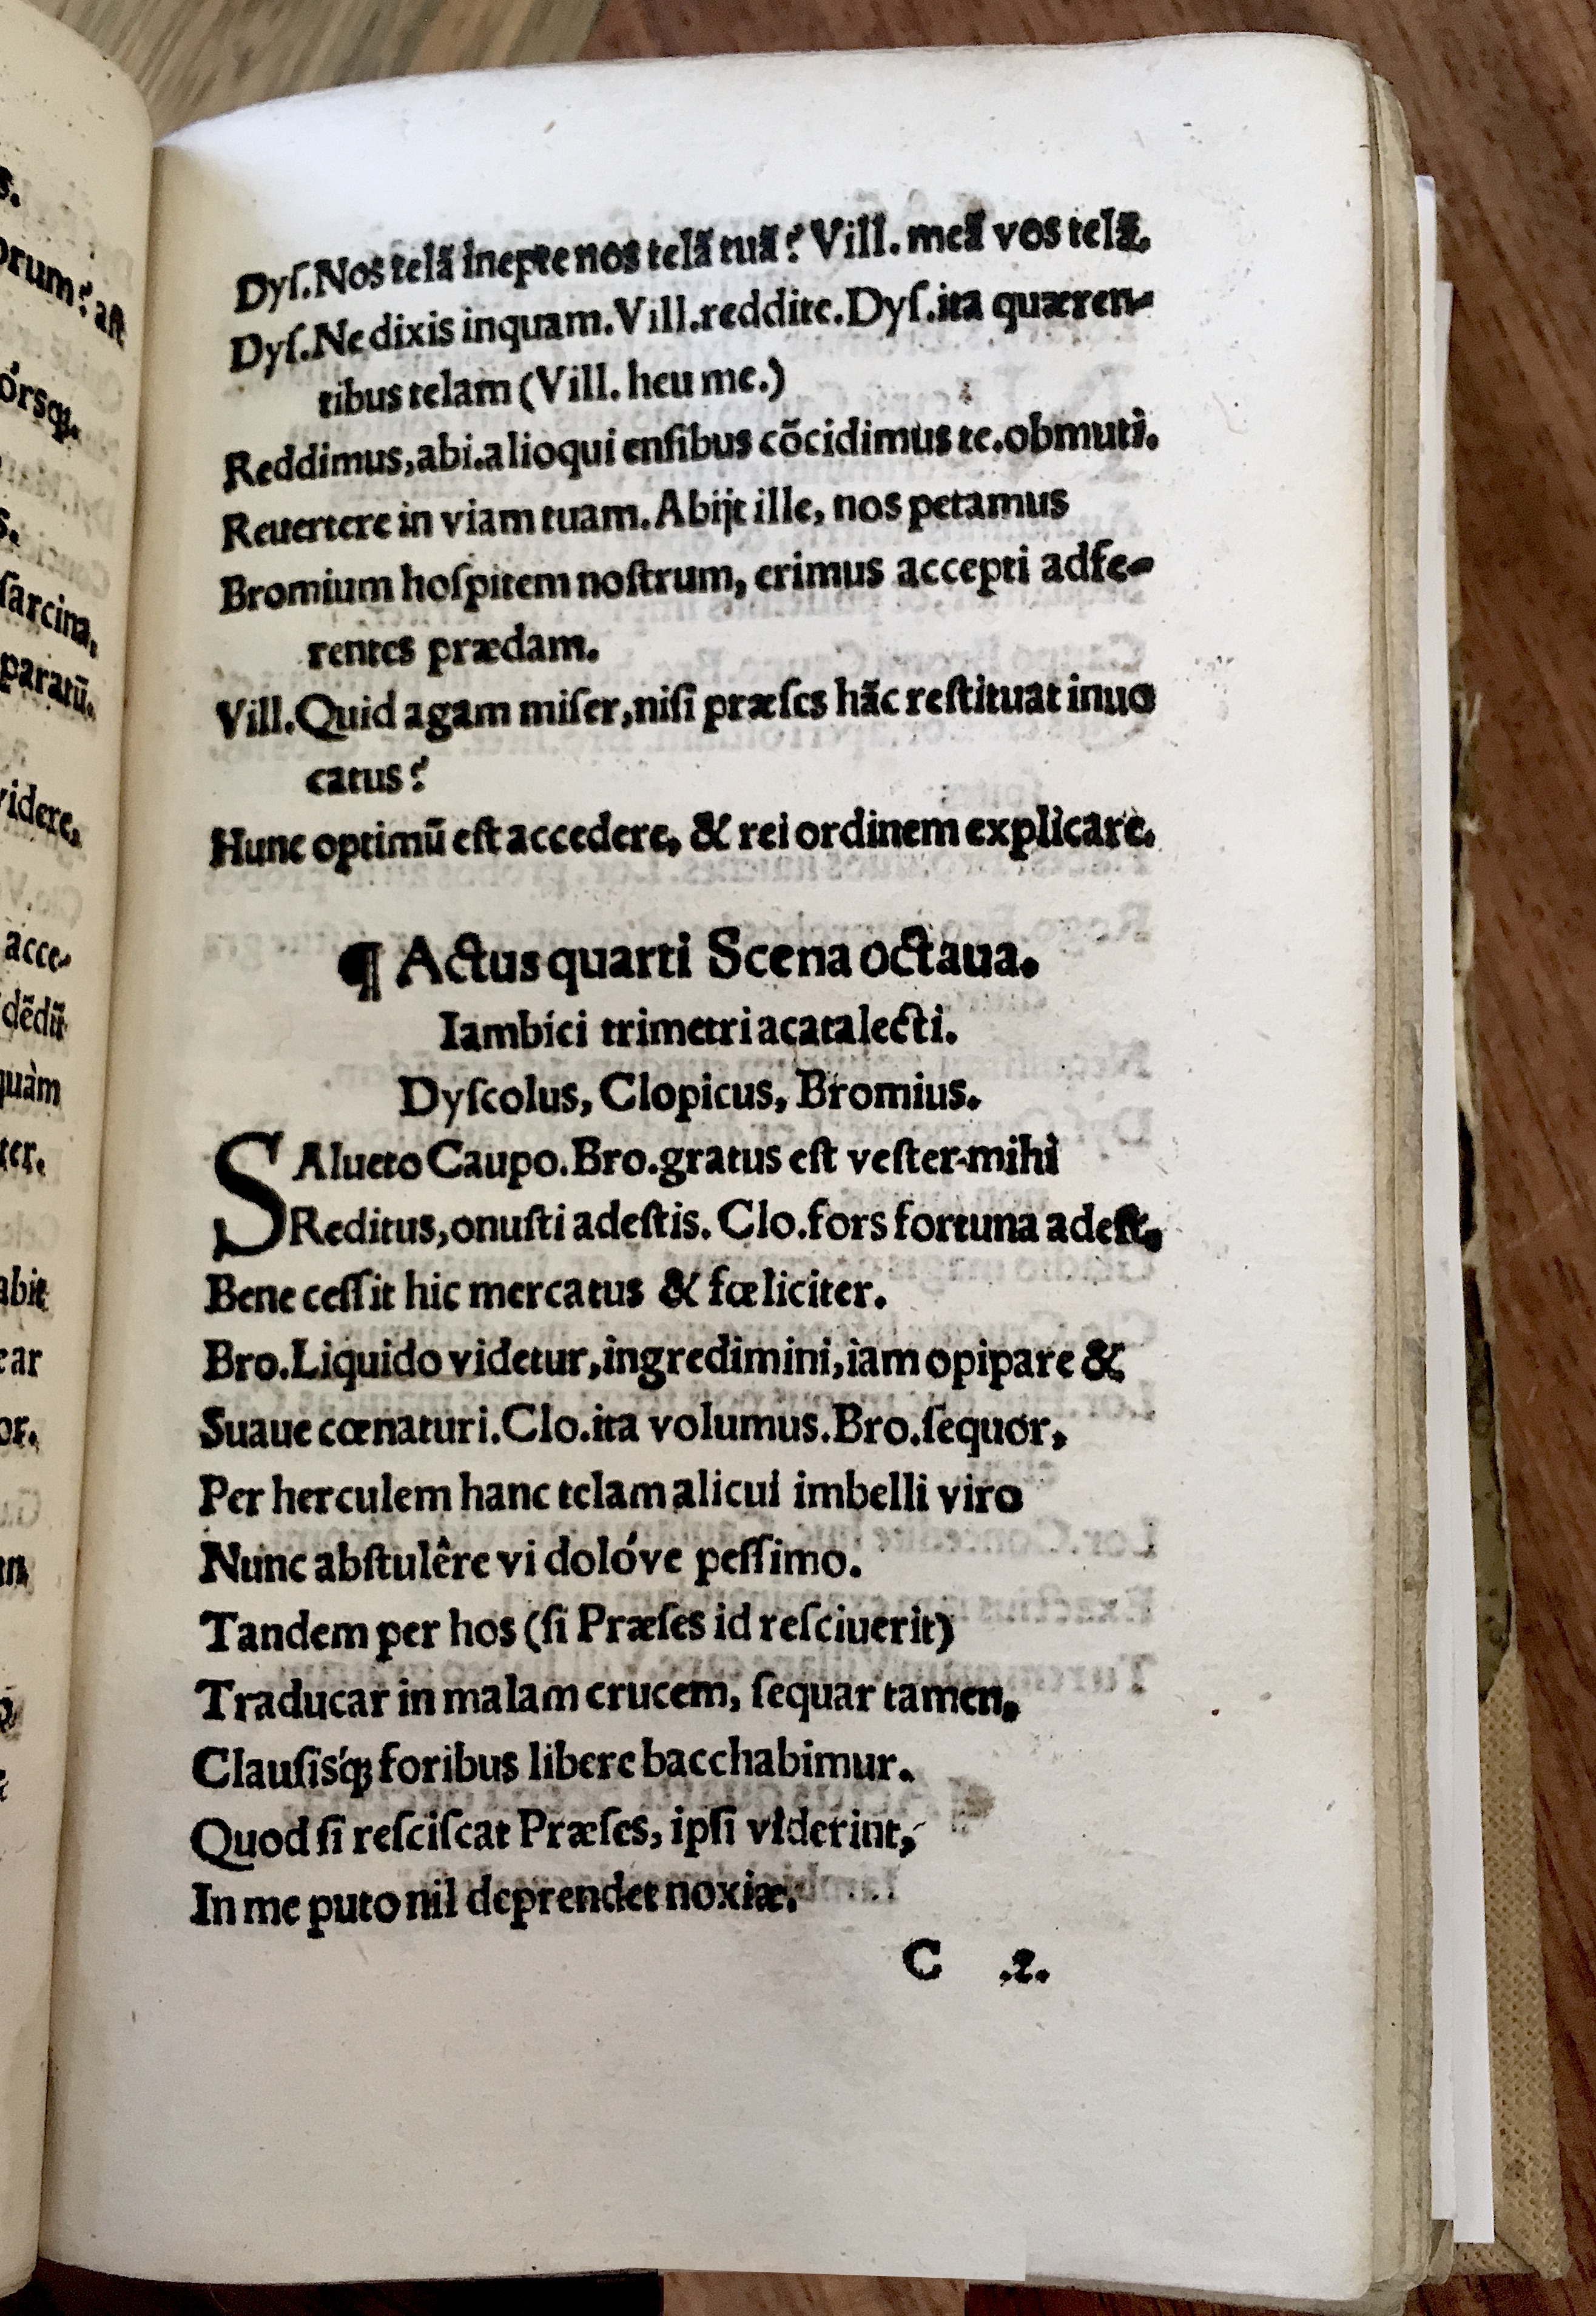 s.
orum? ast
órsq́;.
s.
sarcina,
paratū.
videre,
acce-
dēdū
quàm
ter.
abit
car
or.
Dyſ. Nos telā inepte nos telā tuā? Vill. meā vos telā.
Dyſ. Ne dixis inquam. Vill. reddite. Dyſ. ita quæren-
tibus telam (Vill. heu me.)
Reddimus, abi. alioqui enſibus cōcidimus te. obmuti.
Reuertere in viam tuam. Abijt ille, nos petamus
Bromium hoſpitem noſtrum, erimus accepti adfe-
rentes prædam.
Vill. Quid agam miſer, niſi præſes hāc reſtituat inuo
catus?
Hunc optimū eſt accedere, & rei ordinem explicare.
¶ Actus quarti Scena octaua.
Iambici trimetri acatalecti.
Dyſcolus, Clopicus, Bromius.
SAlueto Caupo. Bro. gratus eſt veſter mihi
Reditus, onuſti adeſtis. Clo. fors fortuna adeſt.
Bene ceſſit hic mercatus & fœliciter.
Bro. Liquido videtur, ingredimini, iam opipare &
Suaue cœnaturi. Clo. ita volumus. Bro. ſequor,
Per herculem hanc telam alicui imbelli viro
Nunc abſtulêre vi dolóve peſſimo.
Tandem per hos (ſi Præſes id reſciuerit)
Traducar in malam crucem, ſequar tamen.
Clauſisq́; foribus libere bacchabimur.
Quod ſi reſciſcat Præſes, ipſi viderint,
In me puto nil deprendet noxiæ.
C .2.